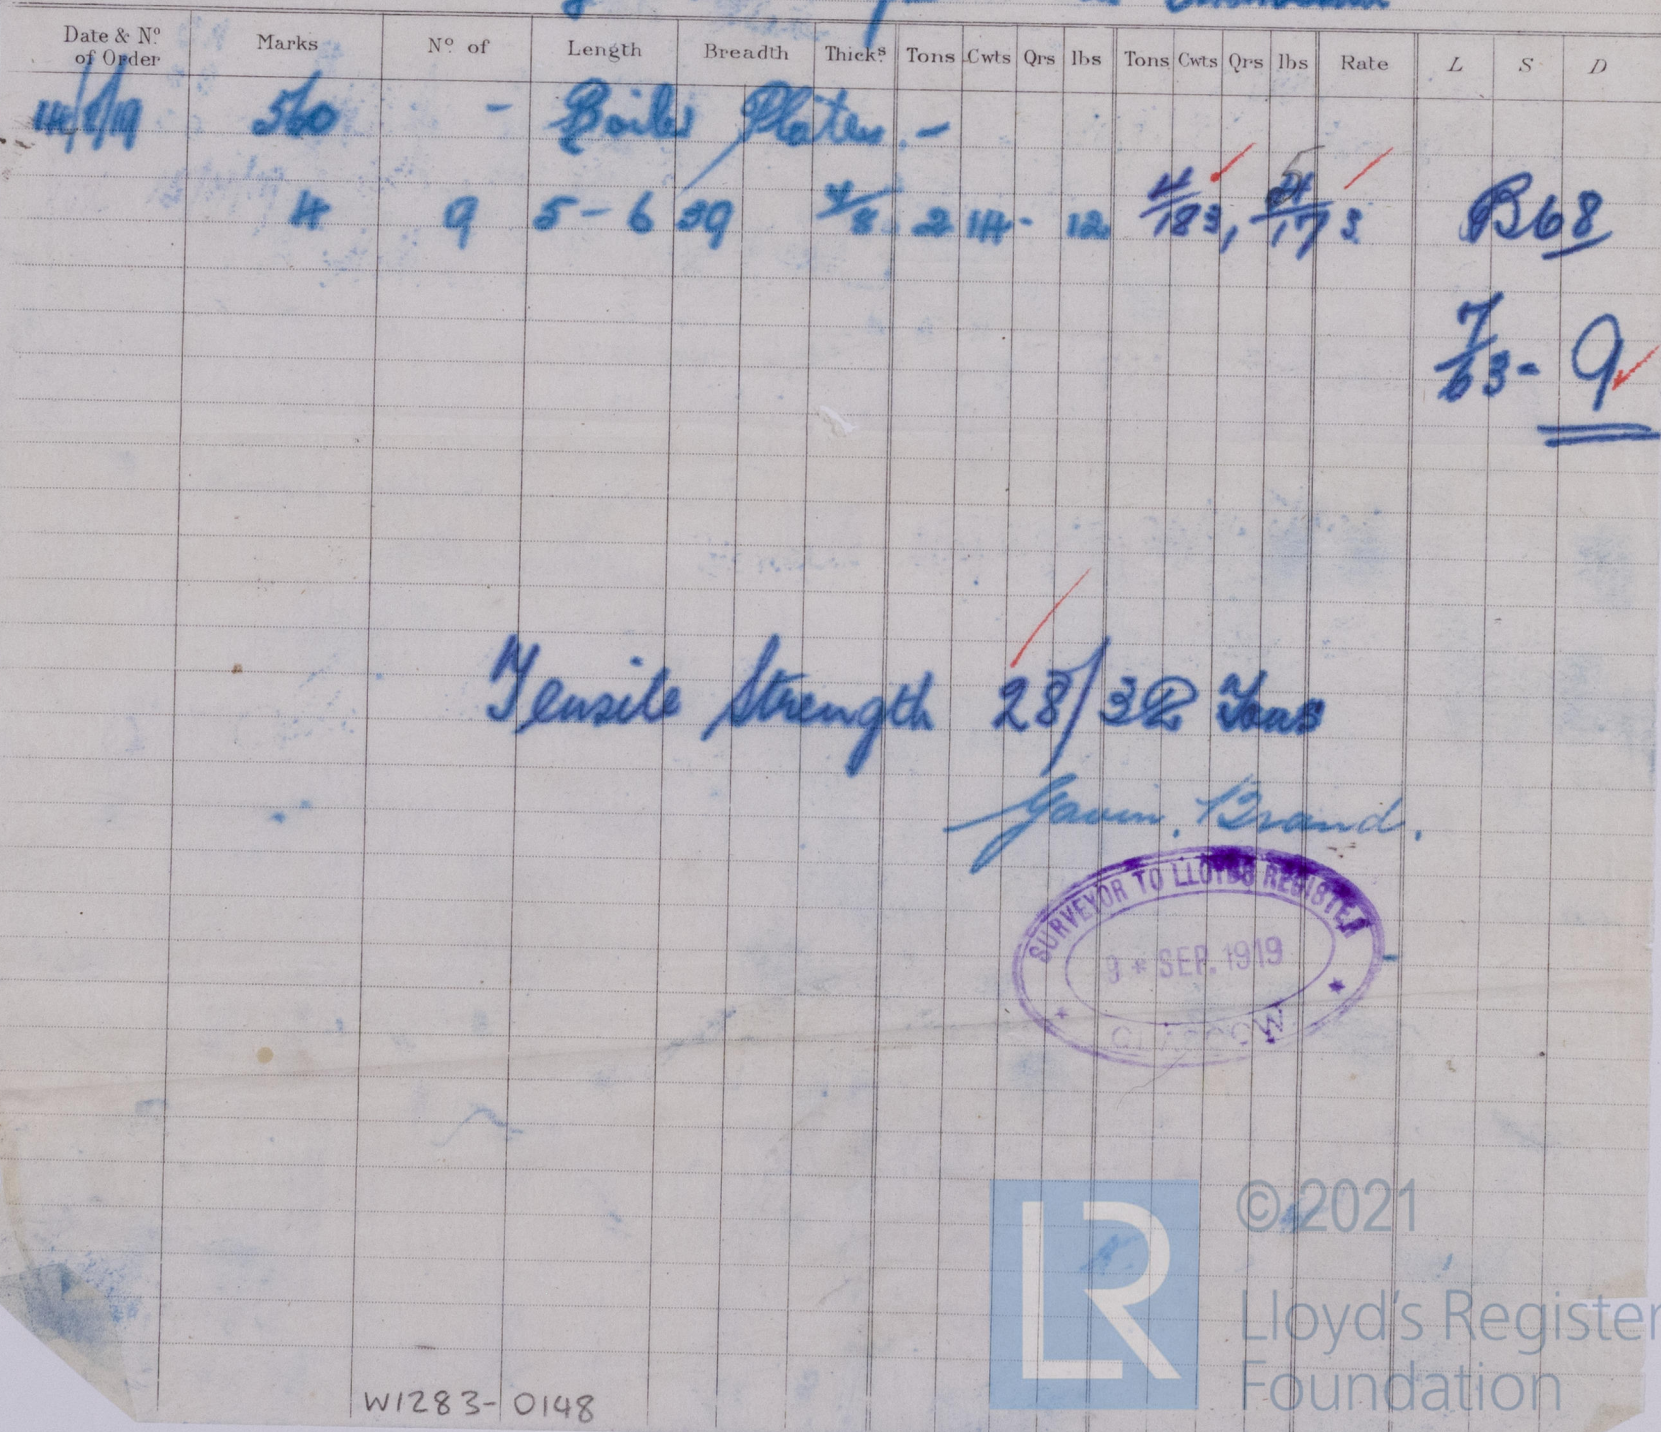 Date & Nº of Order Marks Nº of Length Breadth Thicks. Tons Cwts Qrs lbs Tons Cwts Qrs lbs Rate L S D
14/8/19 560 - Boiler Plates. -
4 9 5-6 29 7/8 2 14 - 12 4/183, 5/173 B68
7/63 - 9
Tensile Strength 28/32 Tons
Gavin. Brand.
SURVEYOR TO LLOYDS REGISTER
9 * SEP. 1919
GLASGOW
© 2021
LR
Lloyd's Register
Foundation
W1283-0148